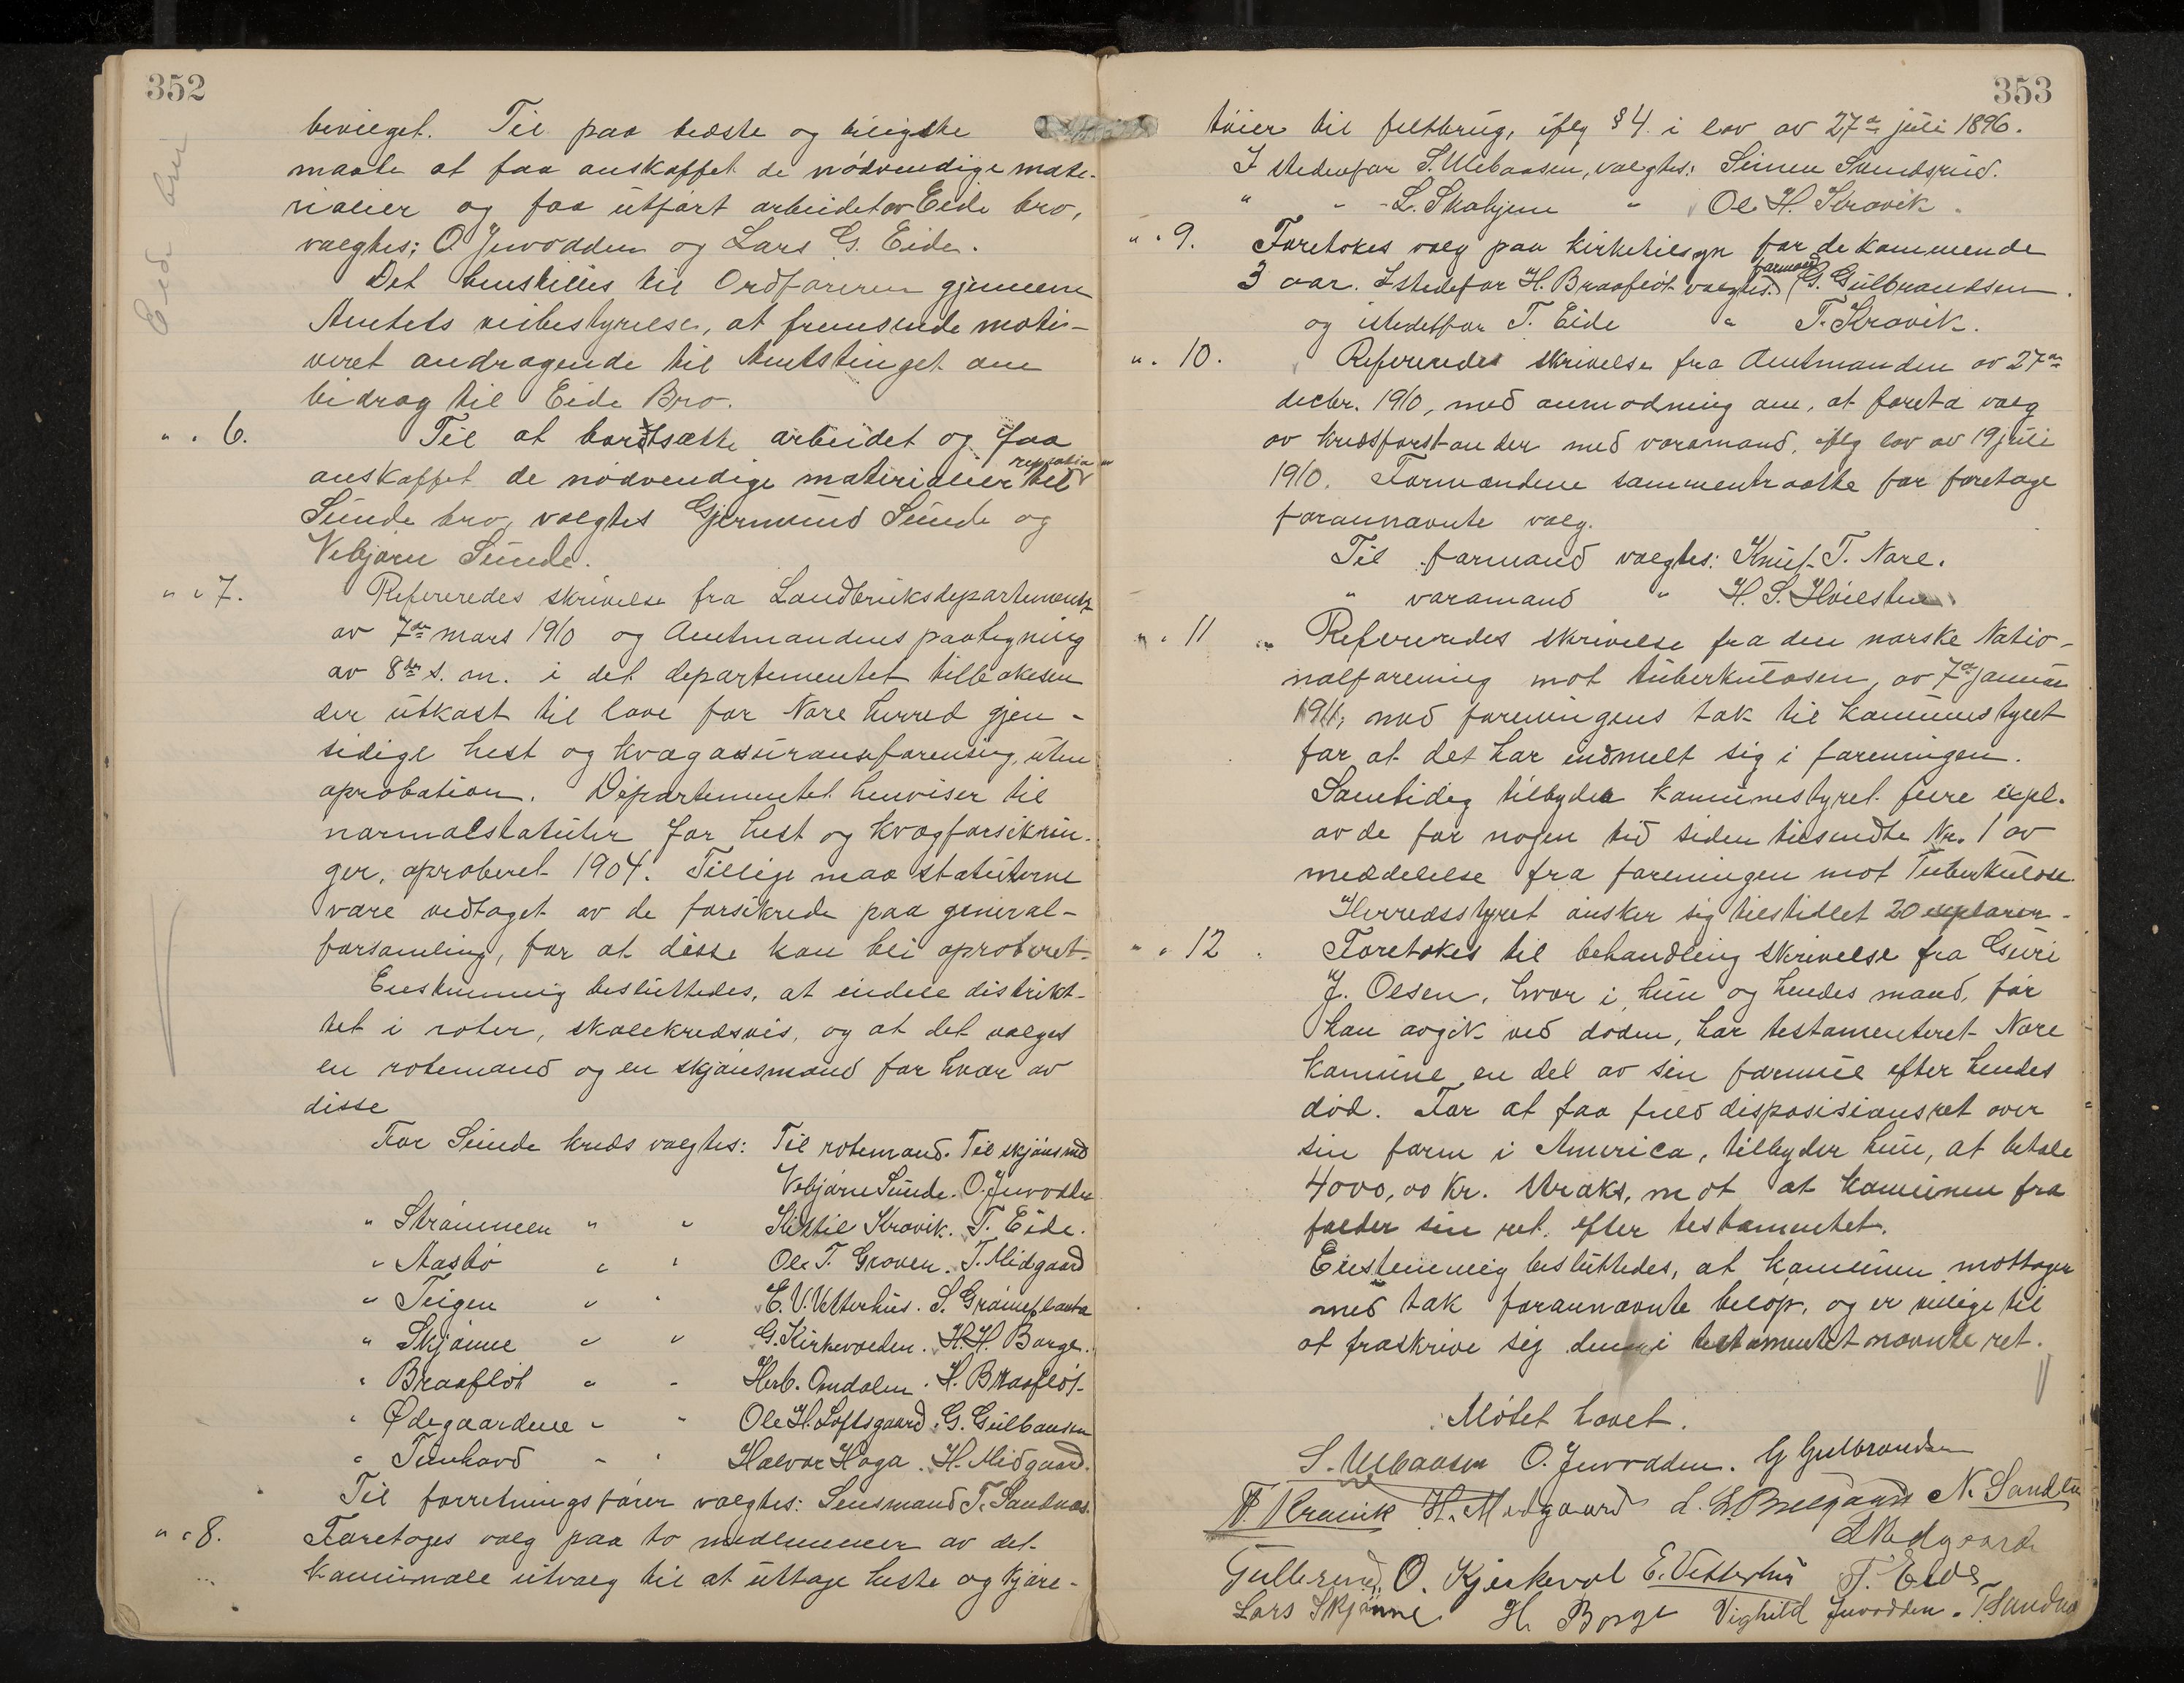 352
Eide bro
bevilget. Til paa bedste og billigste
maate at faa anskaffet de nödvendige mate-
rialier og faa utfört arbeidet av Eide bro,
valgtes; O Juvodden og Lars G. Eide.
Det henstilles til Ordföreren gjennem
Amtets veibestyrelse, at fremsende moti-
veret andragende til Amtstinget om
bidrag til Eide Bro.
" " 6. Til at bortsætte arbeidet og faa
anskaffet de nödvendige materialier til reparation av
Sunde bro, valgtes Gjermund Sunde og
Vebjörn Sunde.
" " 7. Refereredes skrivelse fra Landbruksdepartementet
av 7de mars 1910 og Amtmandens paategning
av 8de s. m. i det departementet tilbakesen
der utkast til love for Nore herred gjen-
sidige hest og kvægassuranseforening, uten
aprobation. Departementet henviser til
normalstatuter for hest og kvægforsikrin-
ger, aproberet 1904. Tillige maa statuterne
være vedtaget av de forsikrede paa general-
forsamling, för at disse kan bli aproberet.
Enstemmig besluttedes, at inddele distrikt-
tet i roter, skolekredsvis, og at det vælges
en rotemand og en skjönsmand for hvær av
disse
For Sunde kreds valgtes: Til rotemand. Til skjönsmd
Vebjörn Sunde. O. Juvodden
" Strömmen " " Kittil Kravik. T. Eide.
" Aasbö " " Ole T. Groven. T. Midgaard
" Teigen " " E. V. Vetterhus. S. Gröneflaata
" Skjönne " " G. Kirkevolden. H. H. Borge.
" Braaflöt " " Herb. Omdalen. H. Braaflöt
" Ödegaardene " " Ole H. Loftsgaard. G. Gulbransen
" Tunhovd " " Halvor Haga. H. Midgaard.
Til forretningsförer valgtes: Lensmand T. Sandnæs.
" " 8. Foretoges valg paa to medlemmer av det
kommunale utvalg til at uttage heste og kjöre-
353
töier til feltbrug, iflg § 4 i lov av 27de juli 1896.
I stedenfor S. Ulbaasen, valgtes: Simen Sandsrud.
" " L. Skahjem " Ole H. Kravik.
" " 9. Foretokes valg paa kirketilsyn for de kommende
3 aar. Istedefor H. Braaflöt valgtes formand G. Gulbrandsen
og istedetfor T. Eide " T. Kravik.
" " 10. Refereredes skrivelse fra Amtmanden av 27de
decbr. 1910, med anmodning om, at foreta valg
av kredsforstander med varamand, iflg lov av 19 juli
1910. Formændene sammentraatte for foretage
forannævnte valg.
Til formand valgtes: Knut T. Nore.
" varamand " H. S. Hvilsten
" " 11 Refereredes skrivelse fra den norske Natio-
nalforening mot tuberkulosen, av 7de januar
1911, med foreningens tak til kommunestyret
for at det har indmelt sig i foreningen.
Samtidig tilbydes kommunestyret flere expl.
av de for nogen tid siden tilsendte Nr. 1 av
meddelelse fra foreningen mot Tuberkulose.
Herredsstyret önsker sig tilstillet 20 explarer.
" " 12. Foretokes til behandling skrivelse fra Guri
J. Olsen, hvor i hun og hendes mand, för
han avgik ved döden, har testamenteret Nore
kommune en del av sin formue efter hendes
död. For at faa fuld disposisionsret over
sin farm i America, tilbyder hun, at betale
4000,00 Kr. straks, mot at kommunen fra
falder sin ret efter testamentet.
Enstemmig besluttedes, at kommunen mottager
med tak forannævnte belöp, og er villige til
at fraskrive sig den i testamentet nævnte ret.
Mötet hævet.
S. Ulbaasen O. Juvodden. G Gulbrandsen
T. Kravik H. Midgaard N. Sandsl
Midgaard
O. Kjerkevol E. Vetterhus T. Eide
Lars Skjönne H. Borge Vighild Juvodden. T. Sandnæs